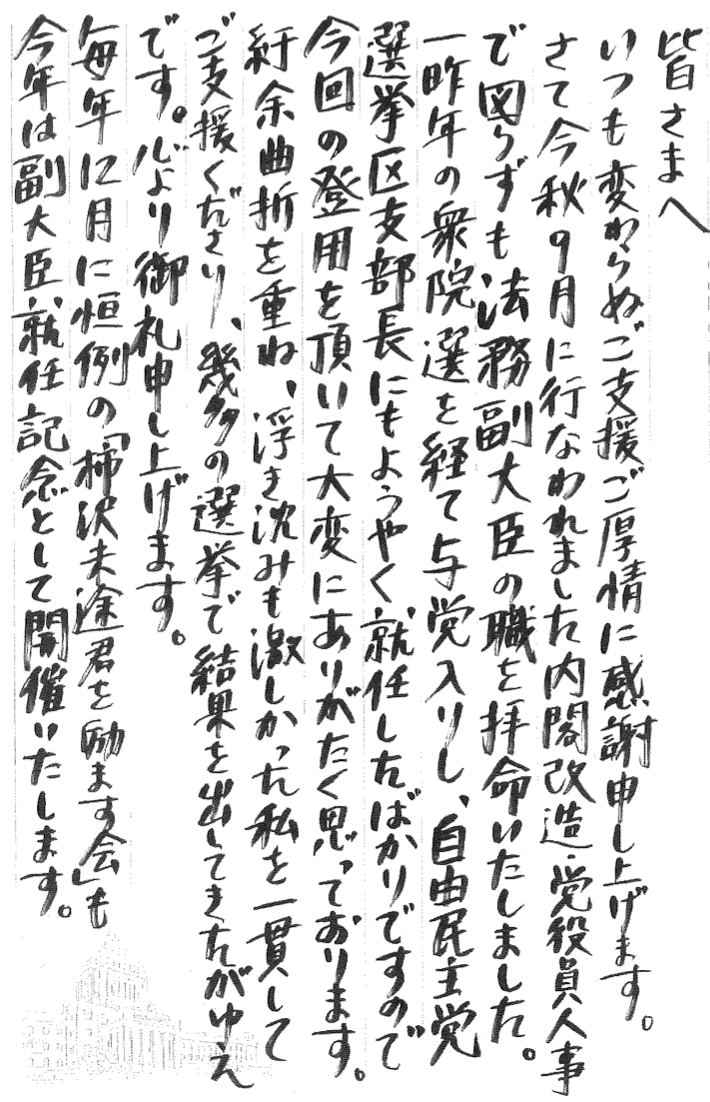 皆さまへ
いつも変わらぬご支援ご厚情に感謝申し上げます。
さて今秋9月に行なわれました内閣改造・党役員人事
で図らずも法務副大臣の職を拝命いたしました。
一昨年の衆院選を経て与党入りし、自由民主党
選挙区支部長にもようやく就任したばかりですので
今回の登用を頂いて大変にありがたく思っております。
紆余曲折を重ね、浮き沈みも激しかった私を一貫して
ご支援くださり、幾多の選挙で結果を出してきたがゆえ
です。心より御礼申し上げます。
毎年12月に恒例の「柿沢未途君を励ます会」も
今年は副大臣就任記念として開催いたします。